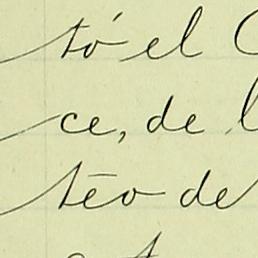 tó el
ce, de
téo de